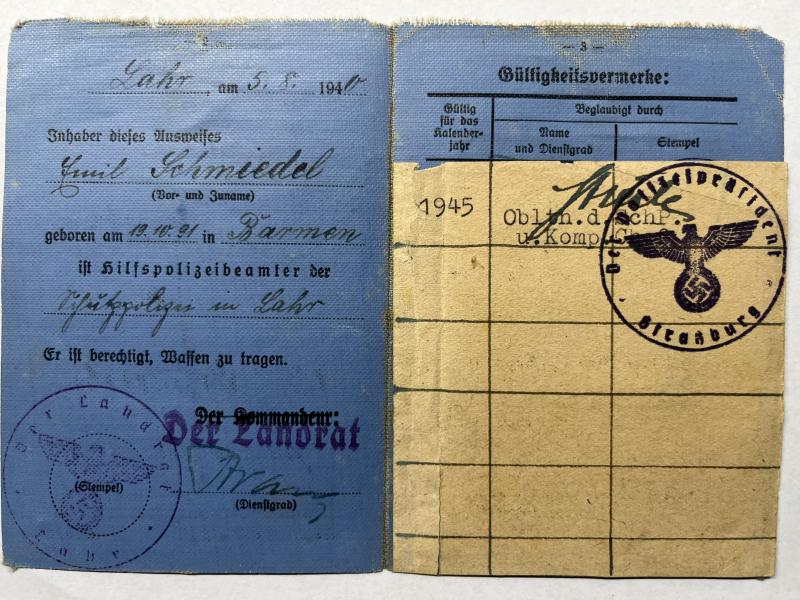 — 2 —
Lahr, am 5. 8. 1940
Inhaber dieses Ausweises
Emil Schmiedel
(Vor- und Zuname)
geboren am 19.10.91 in Barmen
ist Hilfspolizeibeamter der
Schutzpolizei in Lahr
Er ist berechtigt, Waffen zu tragen.
Der Kommandeur:
Der Landrat
(Stempel)
(Dienstgrad)
Der Landrat
Lahr
— 3 —
Gültigkeitsvermerke:
Gültig für das Kalender-jahr
Beglaubigt durch
Name und Dienstgrad
Stempel
1945
Obltn.d.SchP.
u.Komp.
Der Polizeipräsident
Straßburg